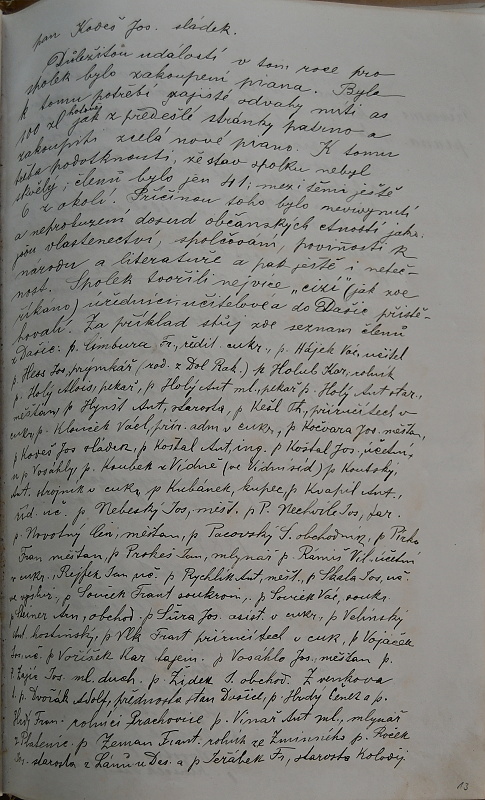 pan Kodeš Jos. sládek.
Důležitou událostí v tom roce pro
spolek bylo zakoupení piana. Bylo
k tomu potřebí zajisté odvahy míti as
100 zl hotově jak z předešlé stránky patrno a
zakoupiti zcela nové piano. K tomu
třeba podotknouti, že stav spolku nebyl
skvělý; členů bylo jen 41; mezi těmi ještě
6 z okolí. Příčinou toho bylo nevivynutí
a neprobuzení dosud občanských ctností jako
jsou vlastenectví, spolčování, povinnosti k
národu a literatuře a pak ještě i neteč-
nost. Spolek tvořili nejvíce "cizí" (jak zde
říkáno) úředníci, učitelové a do Dašic přistě-
hovalí. Za příklad stůj zde seznam členů
z Dašic: p. Cimbura Fr., řídit. cukr., p. Hájek Vác, učitel
p Hess Jos, prymkář (rod. z Dol Rak.) p Holub Kar, rolník
p. Holý Alois, pekař, p Holý Ant ml., pekař p. Holý Ant star.,
měšťan, p Hynšt Ant, starosta, p Kešl Th, příručí tech v
cukr, p. Klouček Václ, přír. adm v cukr., p Kočvara Jos. měšťan,
p Kodeš Jos sládek, p Košťál Ant, ing. p Košťál Jos., účetní
u p Vosáhly p. Koubek z Vídně (ve Vídni síd) p Koutský
Ant. strojník v cukr, p Kubánek, kupec, p Kvapil Ant.,
říd. uč. p Nebeský Jos, měšť. p P. Nechvíle Jos, far.
p. Novotný Čeň, měšťan, p Pacovský S. obchodník, p Pírka
Fran měšťan, p Prokeš Jan, mlynář p. Rámiš Vil. účetní
v cukr., Rejfek Jan uč. p Rychlík Ant, měšť., p Skala Jos, uč
ve výslu., p Souček Frant soukrom., p Souček Vác, soukr.
p Steiner Arn, obchod. p Šůra Jos. asist. v cukr., p Velínský
Ant. hostinský, p Vlk Frant příručí tech v cuk, p Vojáček
Jos, uč. p Voříšek Kar tajem. p Vosáhlo Jos, měšťan p.
P. Zajíc Jos. ml. duch. p. Žídek S. obchod. Z venkova
p. Dvořák Adolf, přednosta stan Dašicl, p. Hrdý Čeněk a p.
Hrdý Fran. rolníci Prachovice p. Vinař Ant ml., mlynář
z Platenic. p Zeman Frant. rolník ze Zminného p. Roček
Jos. starosta z Lánů u Daš. a p Jeřábek Fr, starosta Koloděj
13